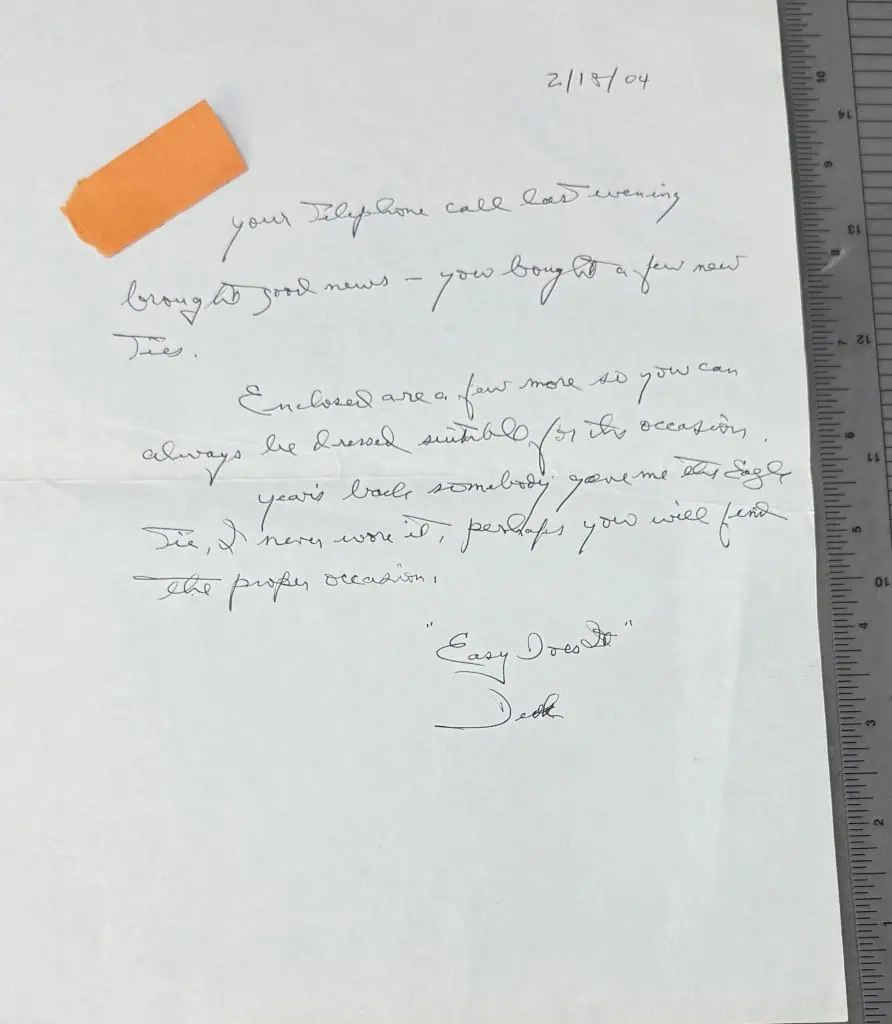 2/18/04
your Telephone call last evening
brought good news – you bought a few new
Ties.
Enclosed are a few more so you can
always be dressed suitable for the occasion.
years back somebody gave me this Eagle
Tie, I never wore it, perhaps you will find
the proper occasion.
"Easy Does It"